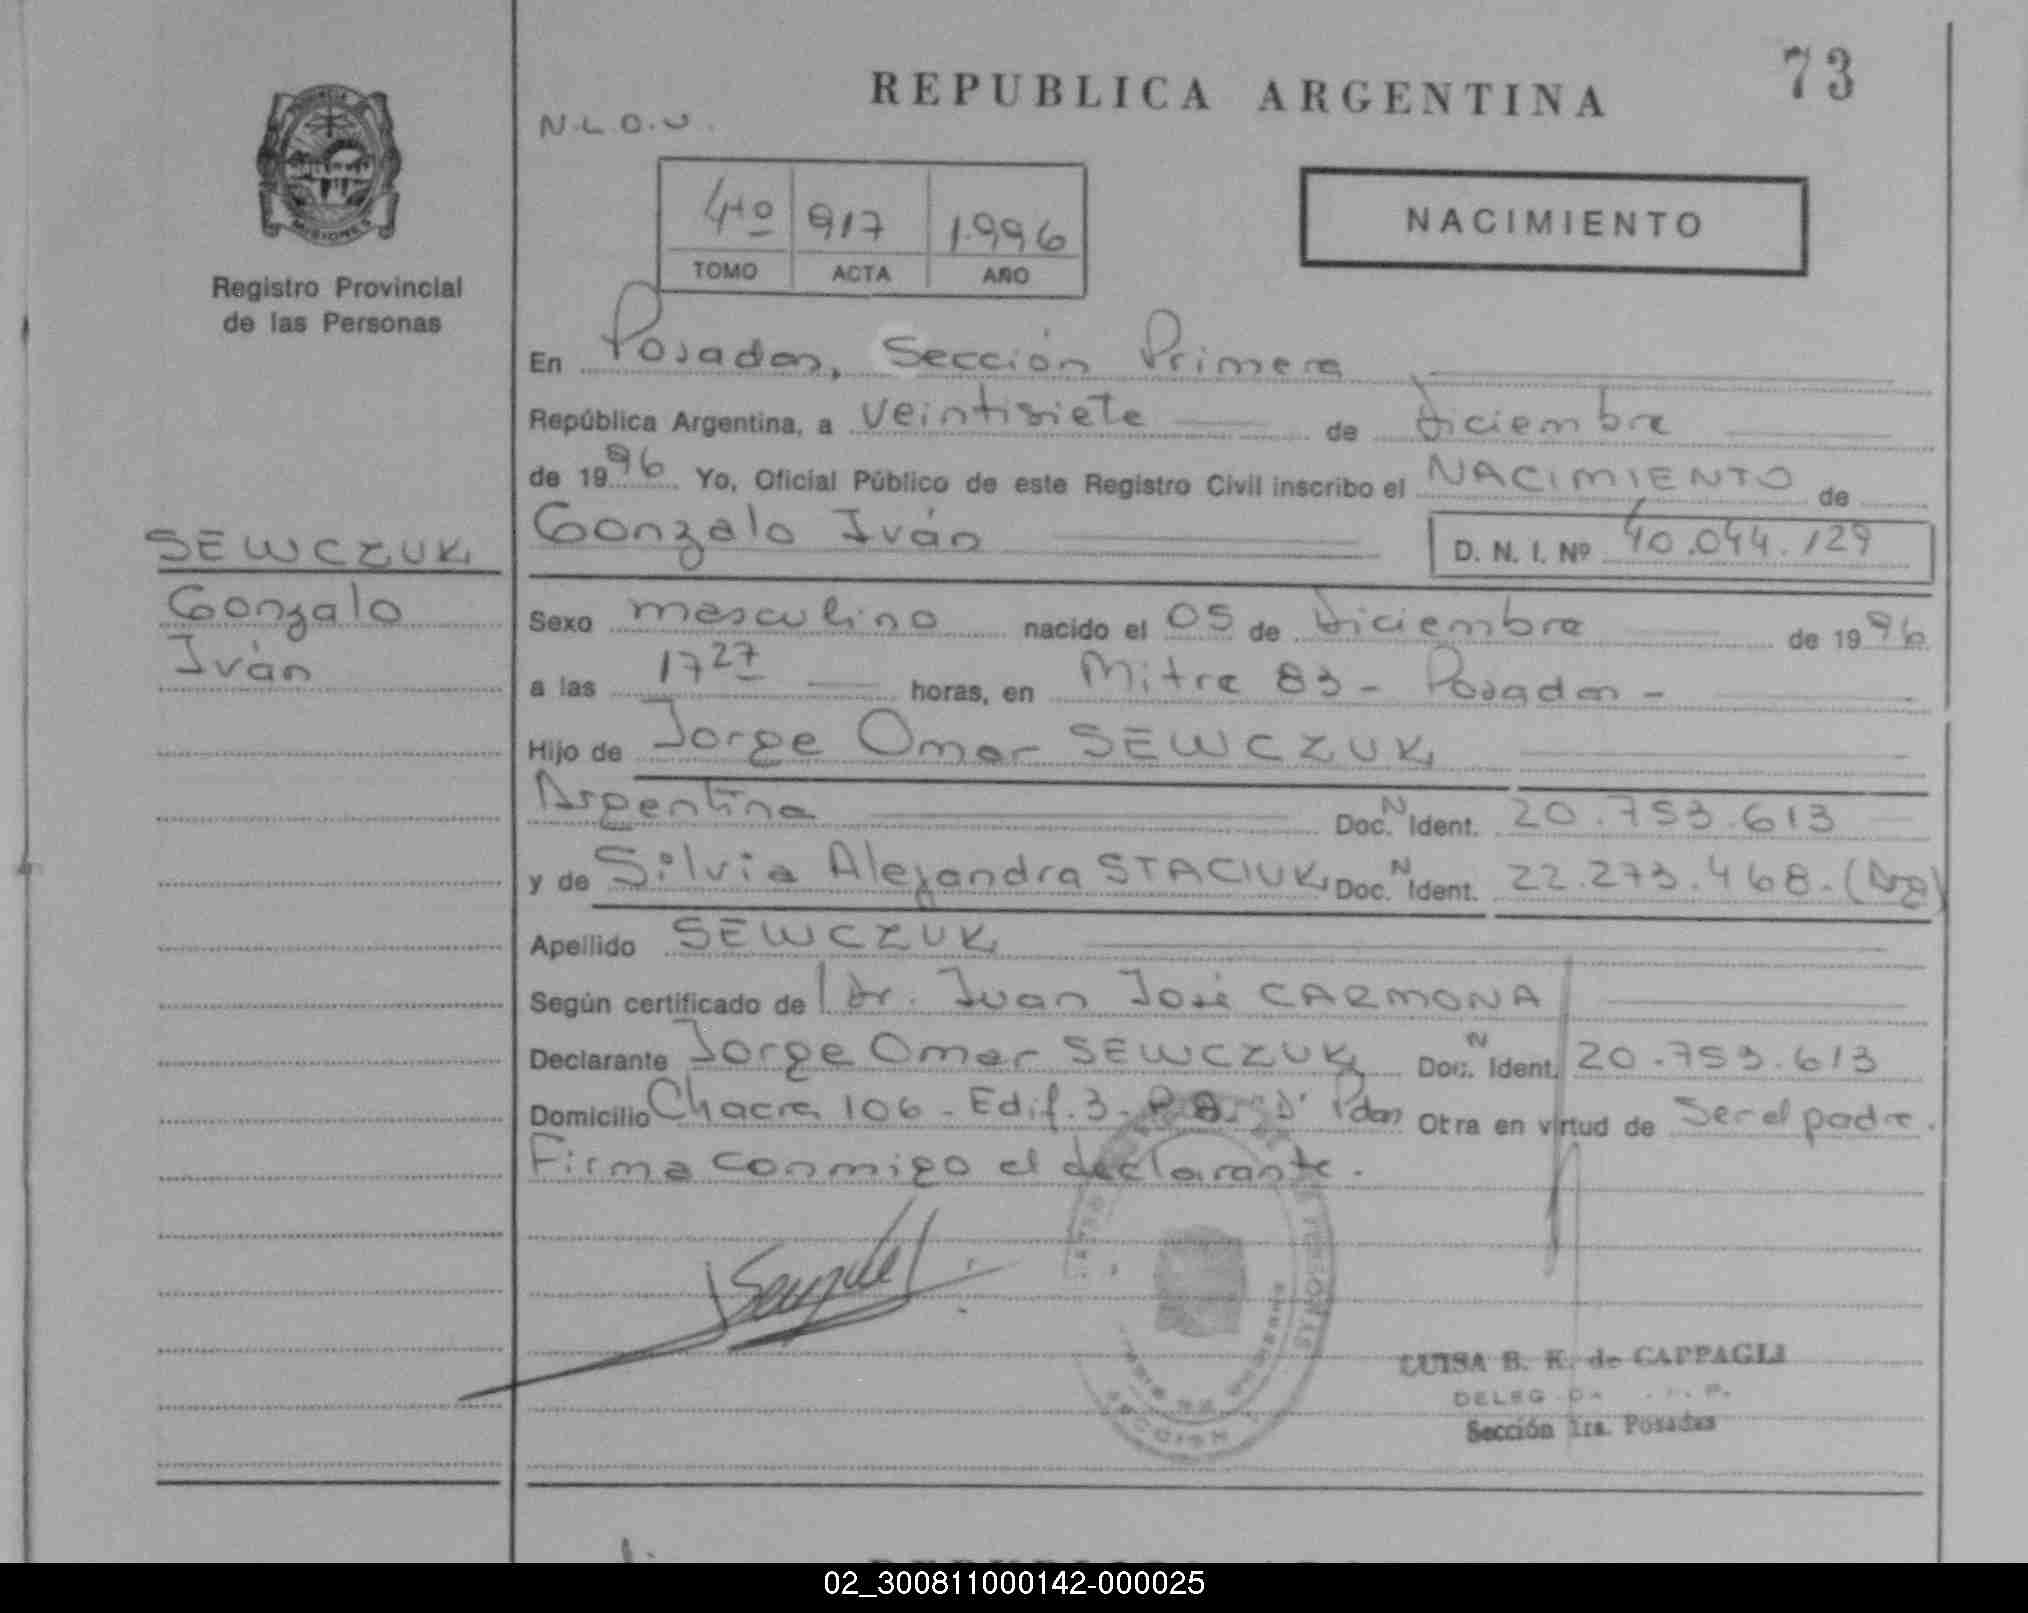 73
REPUBLICA ARGENTINA
N.L.O.U.
4to 917 1.996
TOMO ACTA AÑO
NACIMIENTO
PROVINCIA
MISIONES
Registro Provincial
de las Personas
En Posadas, Sección Primera
República Argentina, a veintisiete de diciembre
de 1996 Yo, Oficial Público de este Registro Civil inscribo el NACIMIENTO de
Gonzalo Iván D. N. I. Nº 40.044.129
SEWCZUK
Gonzalo
Iván
Sexo masculino nacido el 05 de diciembre de 1996
a las 17 27 horas, en Mitre 83 - Posadas -
Hijo de Jorge Omar SEWCZUK
Argentina Doc. N Ident. 20.753.613
y de Silvia Alejandra STACIUK Doc. N Ident. 22.273.468. (Arg)
Apellido SEWCZUK
Según certificado de Dr. Juan José CARMONA
Declarante Jorge Omar SEWCZUK Doc. N Ident. 20.753.613
Domicilio Chacra 106 - Edif. 3 - "D" Pdas Otra en virtud de Ser el padre.
Firma conmigo el declarante.
LUISA B. K. de CAPPAGLI
Sección 1ra. Posadas
02_300811000142-000025